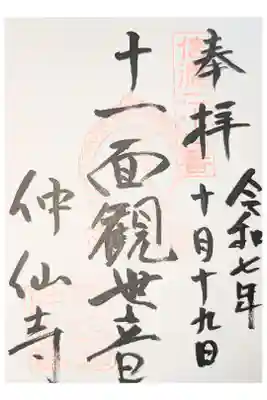 奉拝
令和七年
十月十九日
十一面観世音
仲仙寺